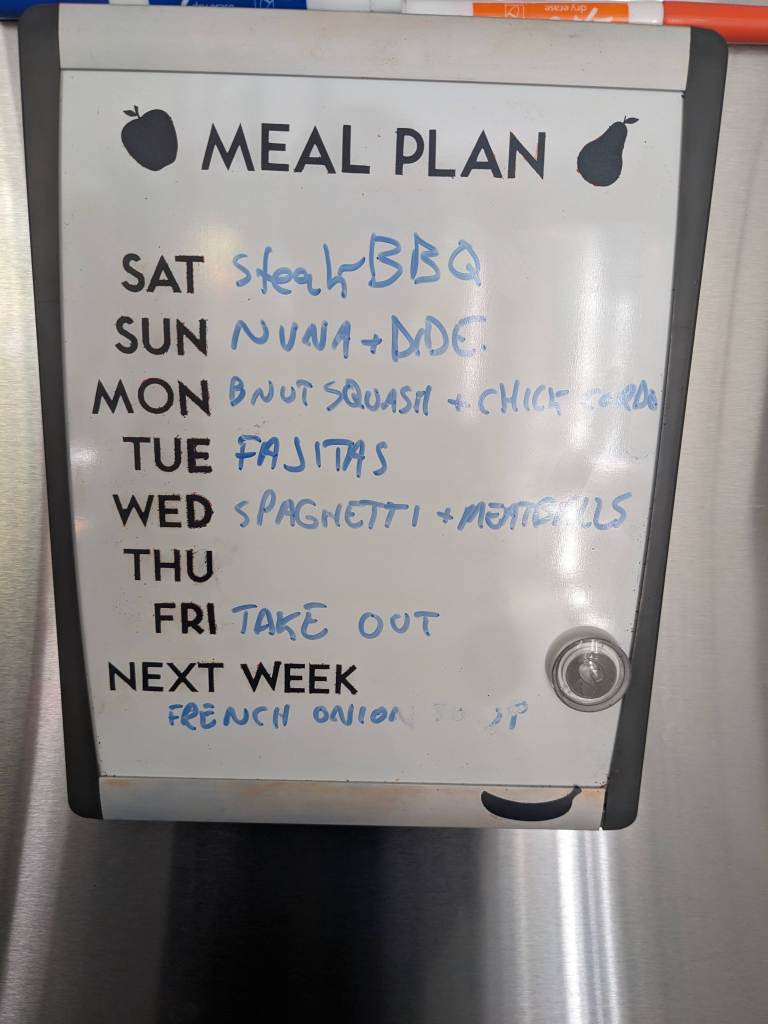 dry erase
MEAL PLAN
SAT Steak BBQ
SUN NUNA + DIDE
MON BNUT SQUASH + CHICK CORDO
TUE FAJITAS
WED SPAGHETTI + MEATBALLS
THU
FRI TAKE OUT
NEXT WEEK
FRENCH ONION SOUP